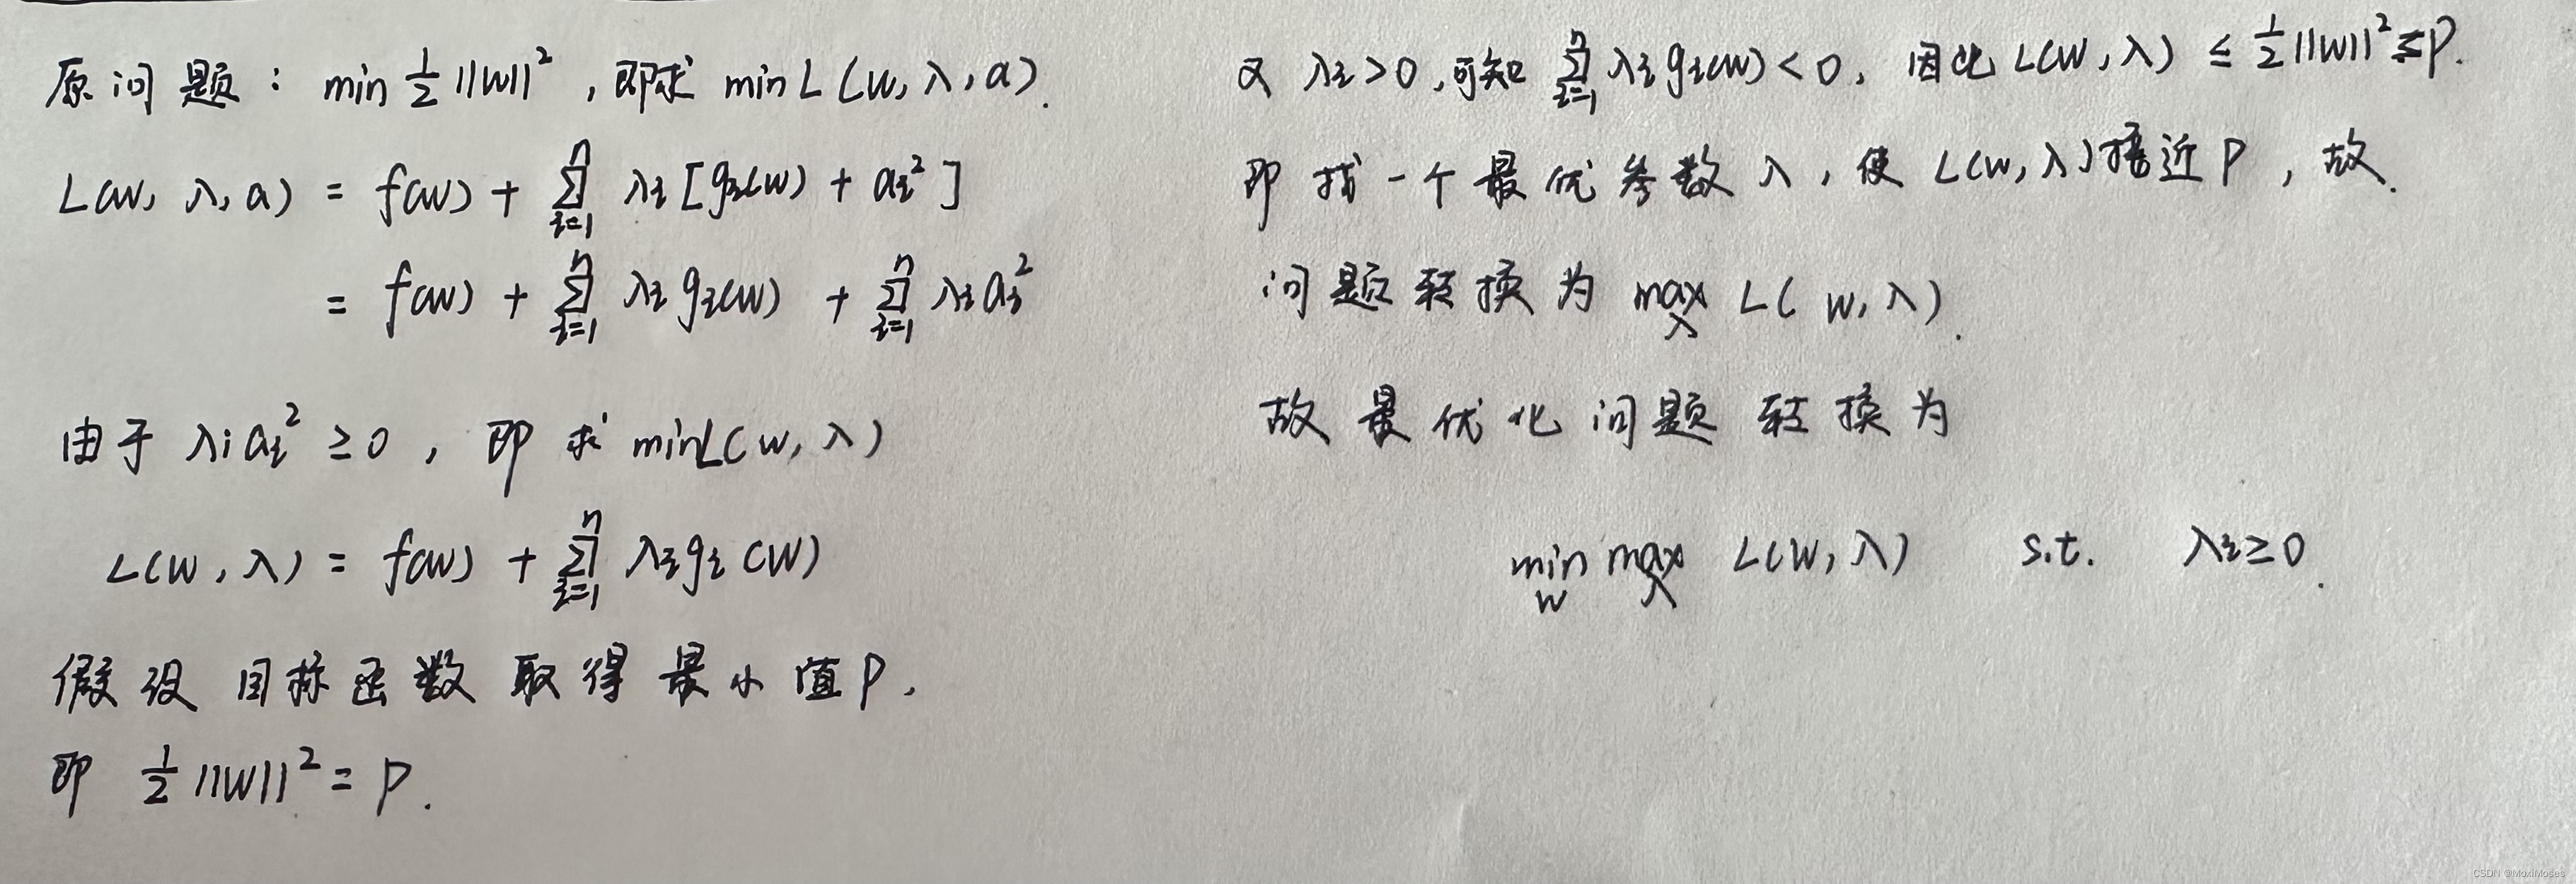 原问题：min ½||W||²，即求 min L(w, λ, a).
L(w, λ, a) = f(w) + ∑_{i=1}^{n} λi [gi(w) + ai²]
= f(w) + ∑_{i=1}^{n} λi gi(w) + ∑_{i=1}^{n} λi ai²
由于 λi ai² ≥ 0，即求 min L(w, λ)
L(w, λ) = f(w) + ∑_{i=1}^{n} λi gi(w)
假设目标函数取得最小值P，
即 ½||W||² = P.
又 λi > 0，可知 ∑_{i=1}^{n} λi gi(w) < 0，因此 L(w, λ) ≤ ½||W||² ≤ P.
即找一个最优参数λ，使 L(w, λ) 接近P，故
问题转换为 max_λ L(w, λ).
故最优化问题转换为
min_w max_λ L(w, λ) s.t. λi ≥ 0.
CSDN @MoxiMoses